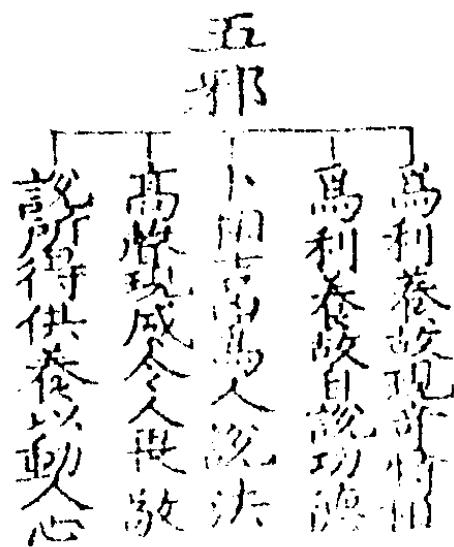 五邪
爲利養故現奇特相
爲利養故自說功德
卜相吉凶爲人說法
高聲現威令人畏敬
說所得供養以動人心